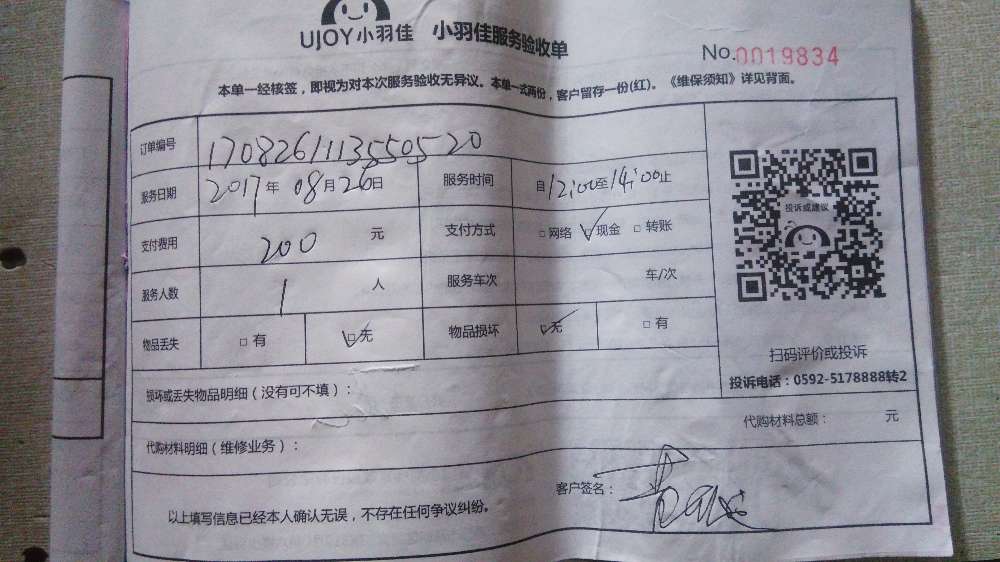 UJOY小羽佳 小羽佳服务验收单
No.0019834
本单一经核签，即视为对本次服务验收无异议。本单一式两份，客户留存一份(红)。《维保须知》详见背面。
订单编号 170826113550520
服务日期 2017年08月26日 服务时间 自12:00至14:00止
投诉或建议
支付费用 200 元 支付方式 □网络 □现金 □转账
服务人数 1 人 服务车次 车/次
物品丢失 □有 □无 物品损坏 □无 □有
扫码评价或投诉
投诉电话：0592-5178888转2
损坏或丢失物品明细（没有可不填）：
代购材料总额： 元
代购材料明细（维修业务）：
客户签名：
以上填写信息已经本人确认无误，不存在任何争议纠纷。